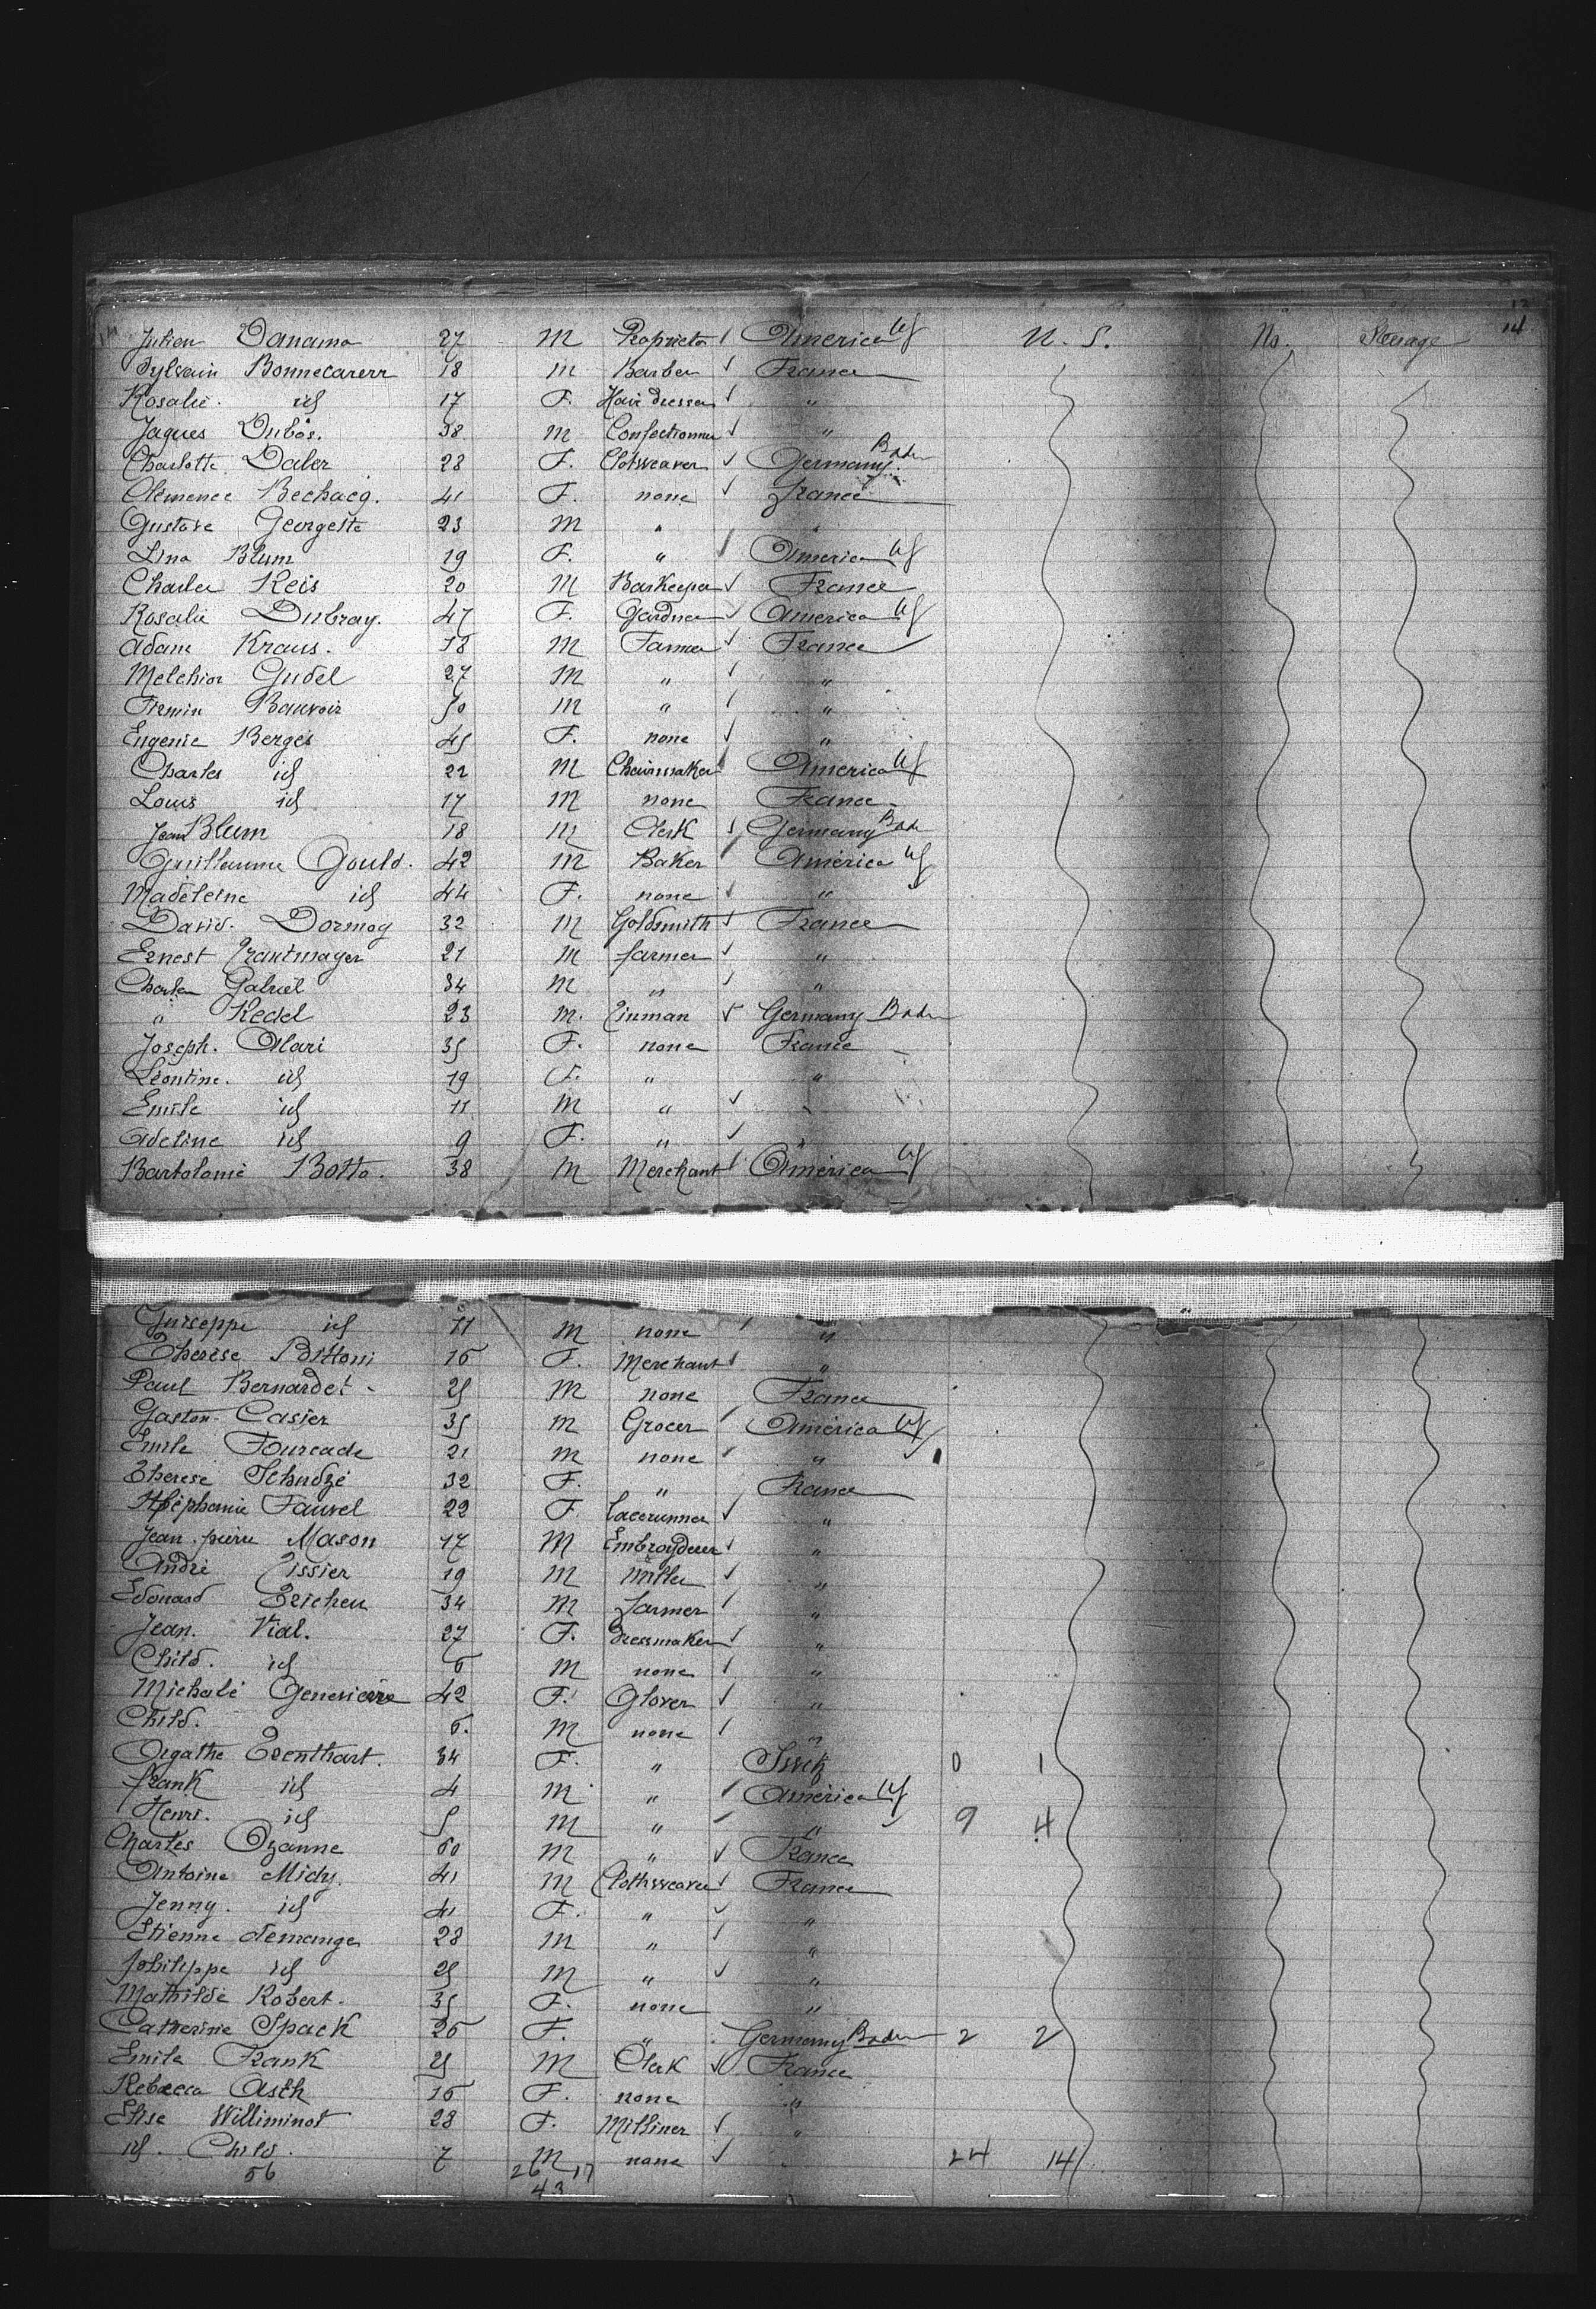 12
14
Julien Danama 27 M Proprietor America US U. S. No. Steerage
Sylvain Bonnecarerr 18 M Barber France
Rosalie id 17 F. Hair dresser "
Jaques Dubos. 38 M Confectionner "
Charlotte Daler 28 F. Clotweaver Germany. Baden
Clemence Bechacq. 41 F. none France
Gustave Georgette 23 M " "
Lina Blum 19 F. " America US
Charles Reis 20 M Barkeeper France
Rosalie Dubray. 47 F. Gardner America US
Adam Kraus. 18 M Farmer France
Melchior Gudel 27 M " "
Firmin Bauvoir 50 M " "
Eugenie Berges 45 F. none "
Charles id 22 M Chairmaker America US
Louis id 17 M none France
Jean Blum 18 M Clerk Germany Baden
Guillaume Gould. 42 M Baker America US
Madeleine id 44 F. none "
David. Dormoy 32 M Goldsmith France
Ernest Trautmayer 21 M farmer "
Charles Gabriel 34 M " "
" Redel 23 M. Tinman Germany Baden
Joseph. Mari 35 F. none France
Léontine. id 19 F. " "
Emile id 11 M " "
Adeline id 9 F. " "
Bartolomé Botto. 38 M Merchant America US
Guiseppe id 11 M none "
Therèse Bittoni 16 F. Merchant "
Paul Bernardet 25 M none France
Gaston Casier 35 M Grocer America US
Emile Fourcade 21 M none "
Therese Schudzé 32 F. " France
Stéphanie Fauvel 22 F. Lacerunner "
Jean-pierre Mason 47 M Embroyderer "
André Tissier 19 M Miller "
Edouard Tricheu 34 M Farmer "
Jean. Vial. 27 F. Dressmaker "
Child. id 6 M none "
Michalé Genevieve 42 F. Glover "
Child. 6. M none "
Agathe Trenthart. 34 F. " Switz 0 1
frank id 4 M " America US
Henri. id 5 M " " 9 4
Charles Ozanne 60 M " France
Antoine Midy. 41 M Clothweaver France
Jenny. id 41 F. " "
Etienne demange 28 M " "
philippe id 25 M " "
Mathilde Robert. 35 F. none "
Catherine Spack 26 F. " Germany Baden 2 2
Emile Frank 25 M Clerk France
Rebecca Asch 16 F. none "
Elise Williminot 28 F. Milliner "
id. Child. 7 M none 24 14
56 26 17
43